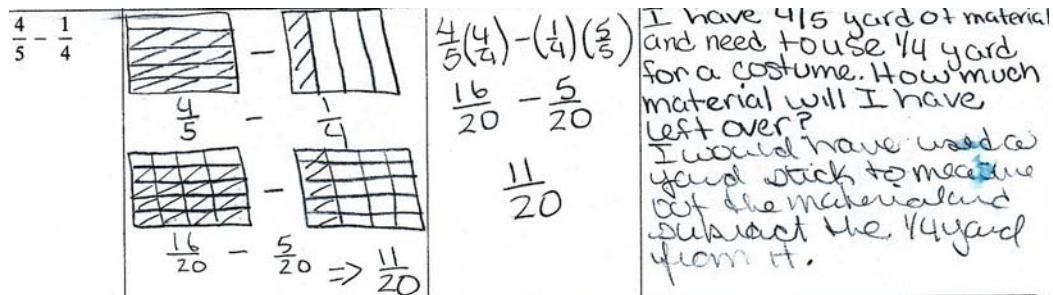 4/5 - 1/4
4/5 - 1/4
16/20 - 5/20 => 11/20
4/5(4/4) - (1/4)(5/5)
16/20 - 5/20
11/20
I have 4/5 yard of material
and need to use 1/4 yard
for a costume. How much
material will I have
left over?
I would have used a
yard stick to measure
out the material and
subtract the 1/4 yard
from it.